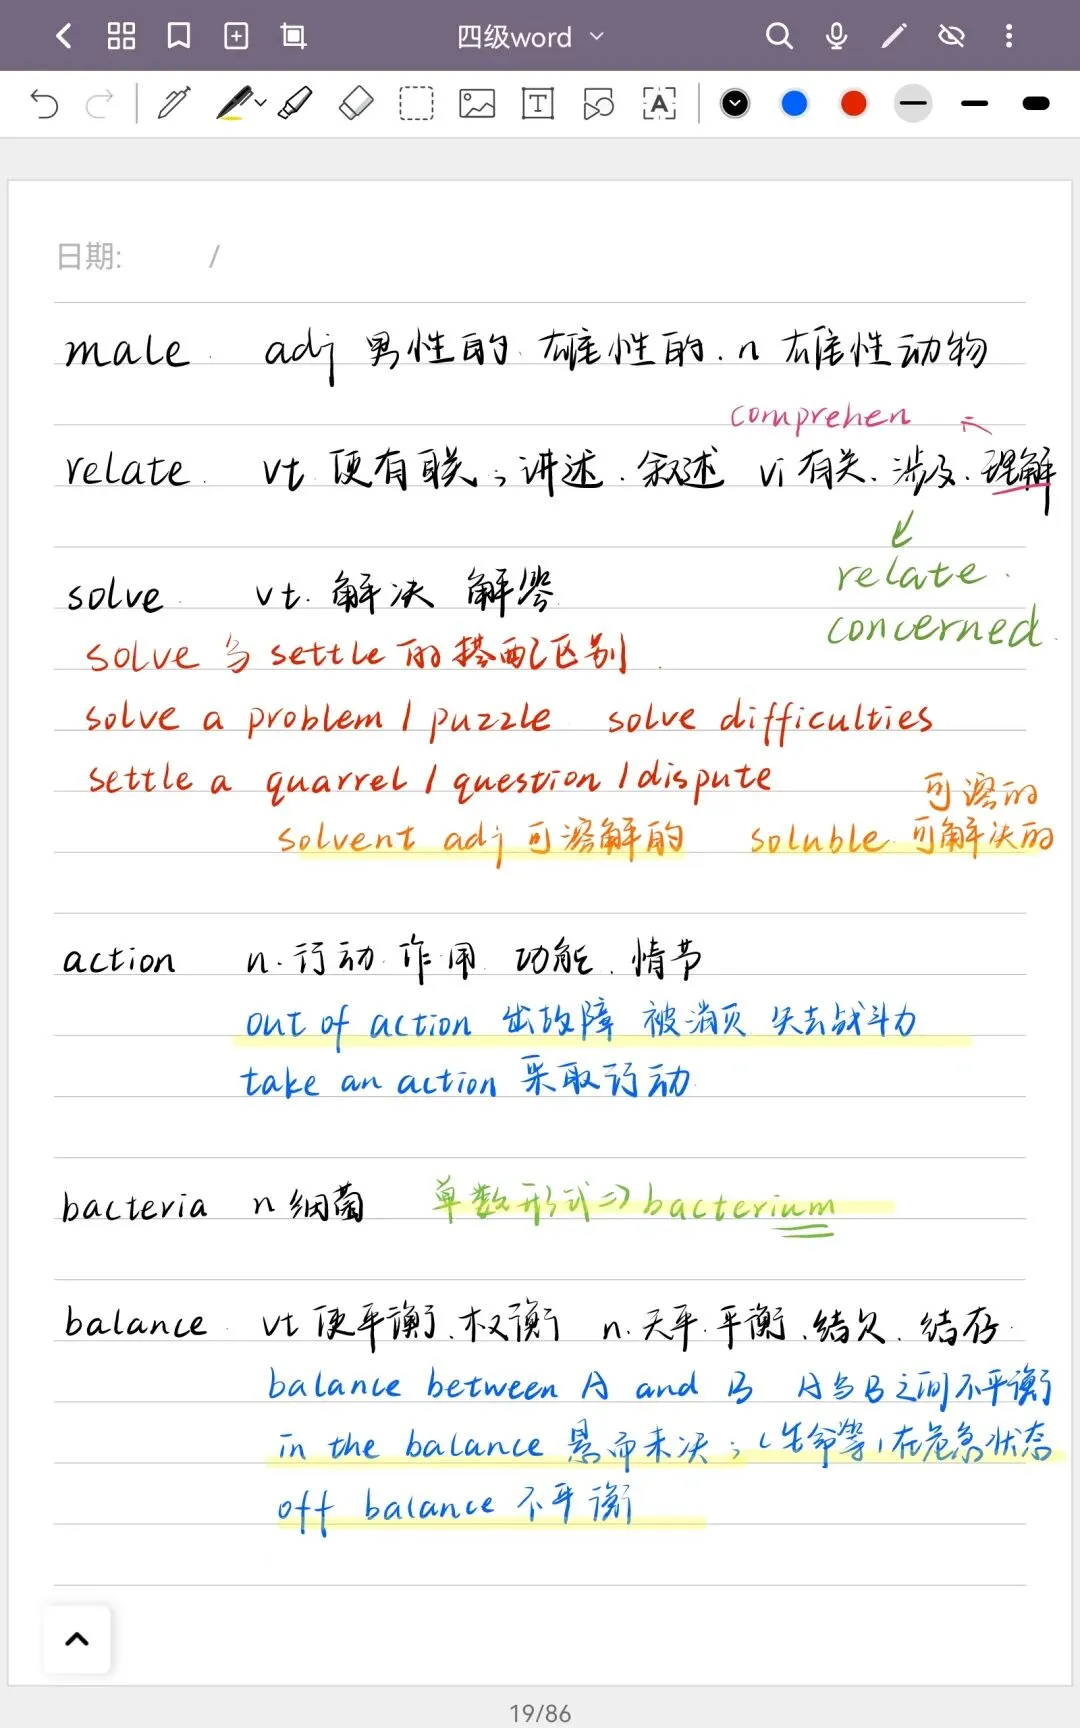 四级word
日期: /
male adj 男性的. 雄性的. n 雄性动物
comprehen
relate vt 使有联; 讲述. 叙述 vi 有关. 涉及. 理解
relate.
concerned.
solve vt. 解决 解答
solve 与 settle 的搭配区别
solve a problem / puzzle solve difficulties
settle a quarrel / question / dispute
可溶的
solvent adj 可溶解的 soluble 可解决的
action n. 行动. 作用. 功能. 情节
out of action 出故障 被消灭 失去战斗力
take an action 采取行动
bacteria n 细菌 单数形式⇒bacterium
balance vt 使平衡. 权衡 n. 天平. 平衡. 结欠. 结存.
balance between A and B A与B之间不平衡
in the balance 悬而未决; (生命等)在危急状态
off balance 不平衡
19/86